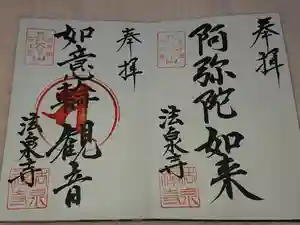 奉拝
阿弥陀如来
法泉寺
奉拝
如意輪観音
法泉寺